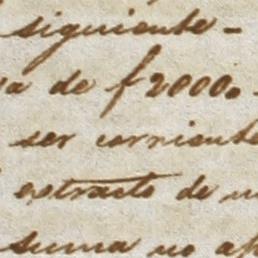 siguiente-
de f2000.-
ser corriente
extracto de
suma no